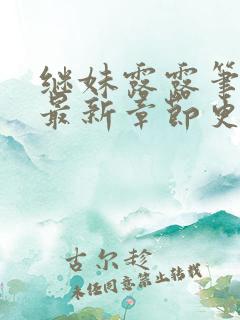 继妹露露笔
最新章节史
古尔趁
未经同意禁止转载